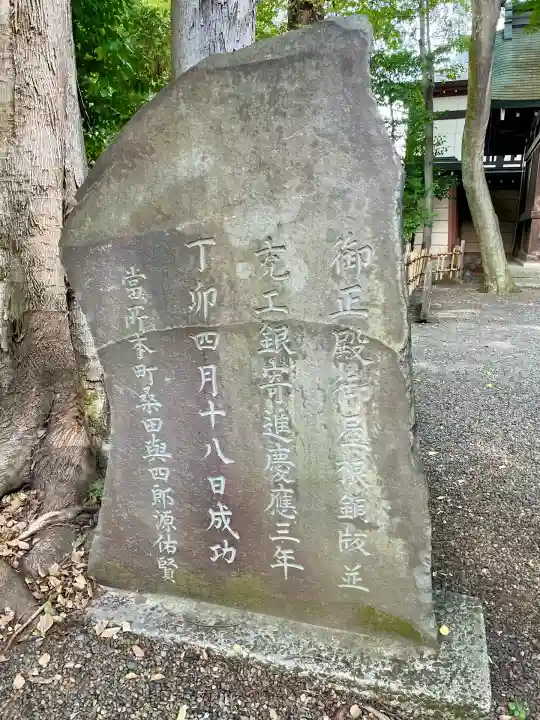 御正殿御屋根銅瓦並
売工銀寄進慶應三年
丁卯四月十八日成功
當所本町桑田與四郎源佑賢